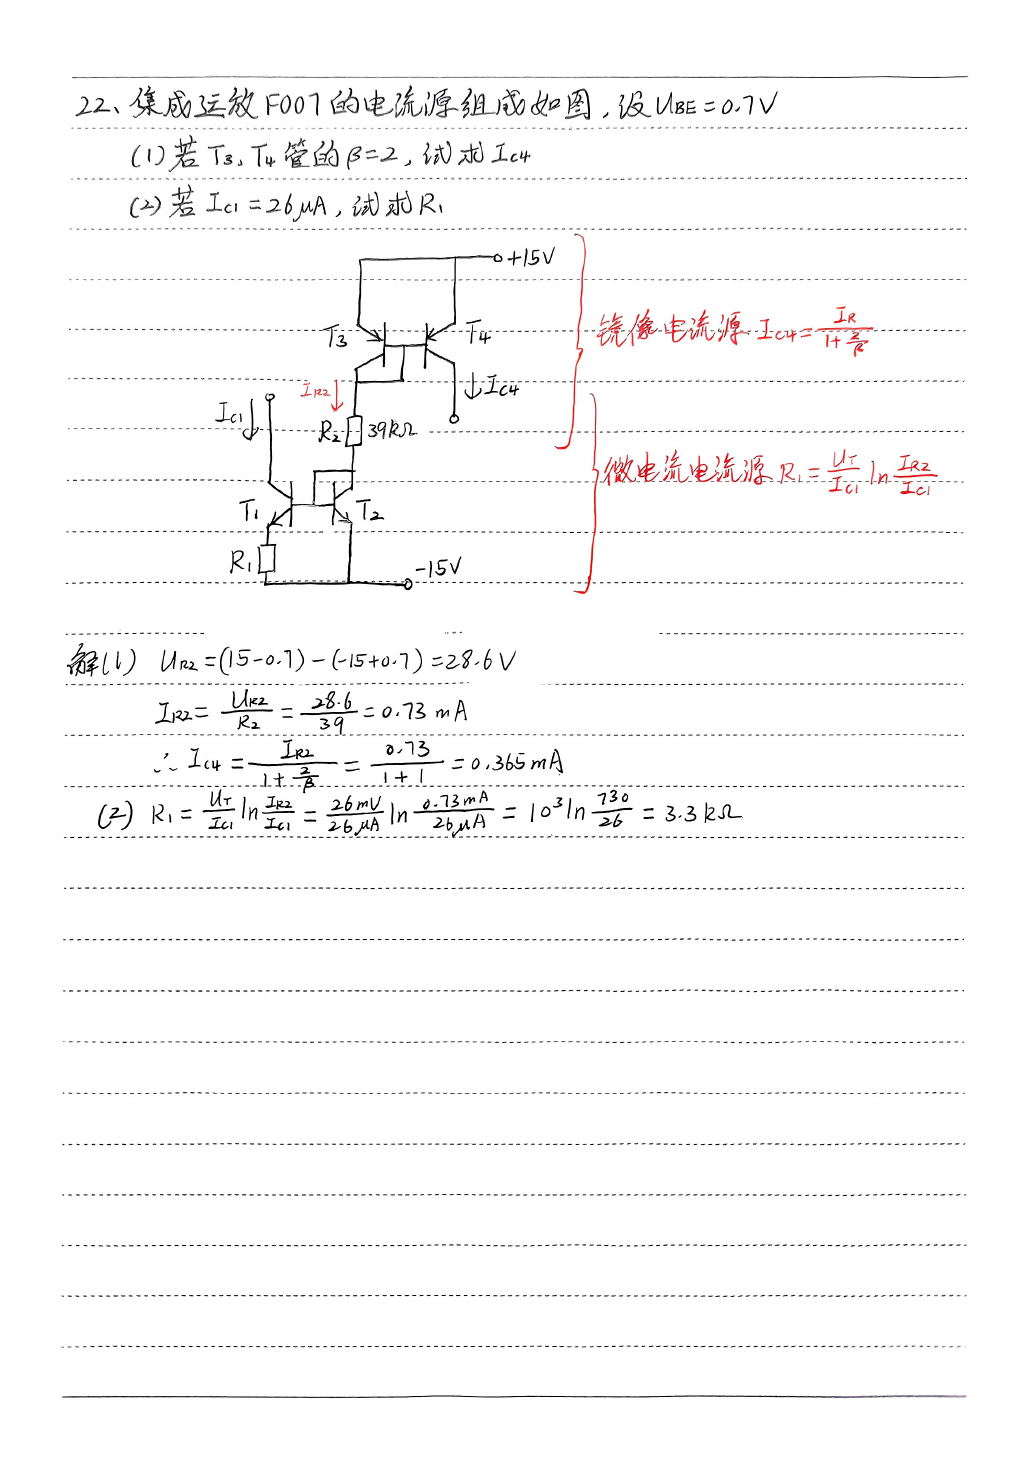 22、集成运放F007的电流源组成如图,设UBE=0.7V
(1)若T3、T4管的β=2,试求IC4
(2)若IC1=26μA,试求R1
+15V
T3
T4
镜像电流源 IC4=IR/(1+2/β)
IR2
IC4
IC1
R2
39kΩ
微电流电流源 R1=UT/IC1 ln IR2/IC1
T1
T2
R1
-15V
解(1) UR2=(15-0.7)-(-15+0.7)=28.6V
IR2=UR2/R2=28.6/39=0.73mA
∴ IC4=IR2/(1+2/β)=0.73/(1+1)=0.365mA
(2) R1=UT/IC1 ln IR2/IC1=26mV/26μA ln 0.73mA/26μA=10³ln 730/26=3.3kΩ